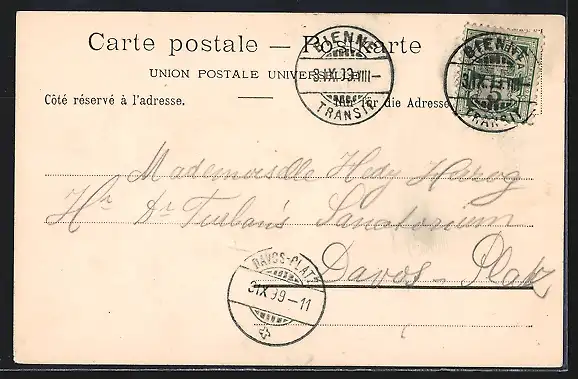 Carte postale — Postkarte
UNION POSTALE UNIVERSELLE
BIENNE
3.IX.99-VIII-
TRANSIT
BIENNE
TRANSIT
5
Côté réservé à l'adresse.
Nur für die Adresse
Mademoiselle Hedy Herzog
Hr. Dr Turban's Sanatorium
Davos-Platz
DAVOS-PLATZ
3.IX.99-11